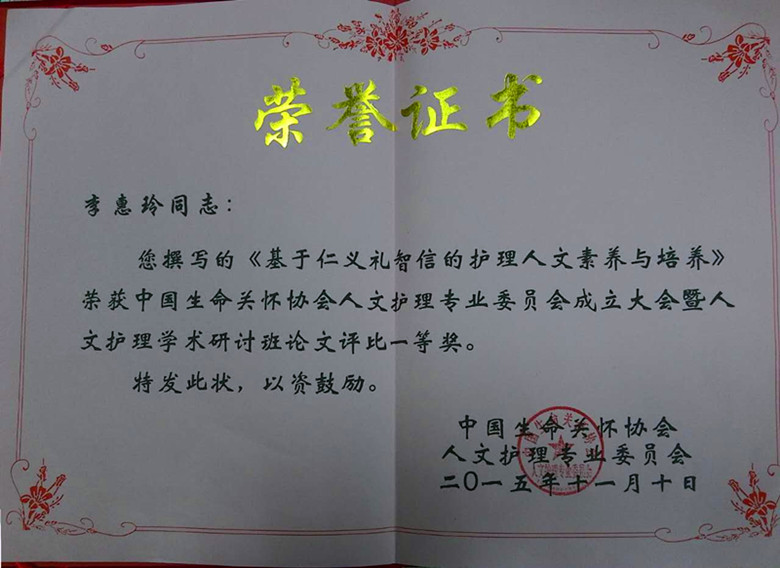 荣誉证书
李惠玲同志：
您撰写的《基于仁义礼智信的护理人文素养与培养》
荣获中国生命关怀协会人文护理专业委员会成立大会暨人
文护理学术研讨班论文评比一等奖。
特发此状，以资鼓励。
中国生命关怀协会
人文护理专业委员会
二〇一五年十一月十日
中国生命关怀协会
人文护理专业委员会